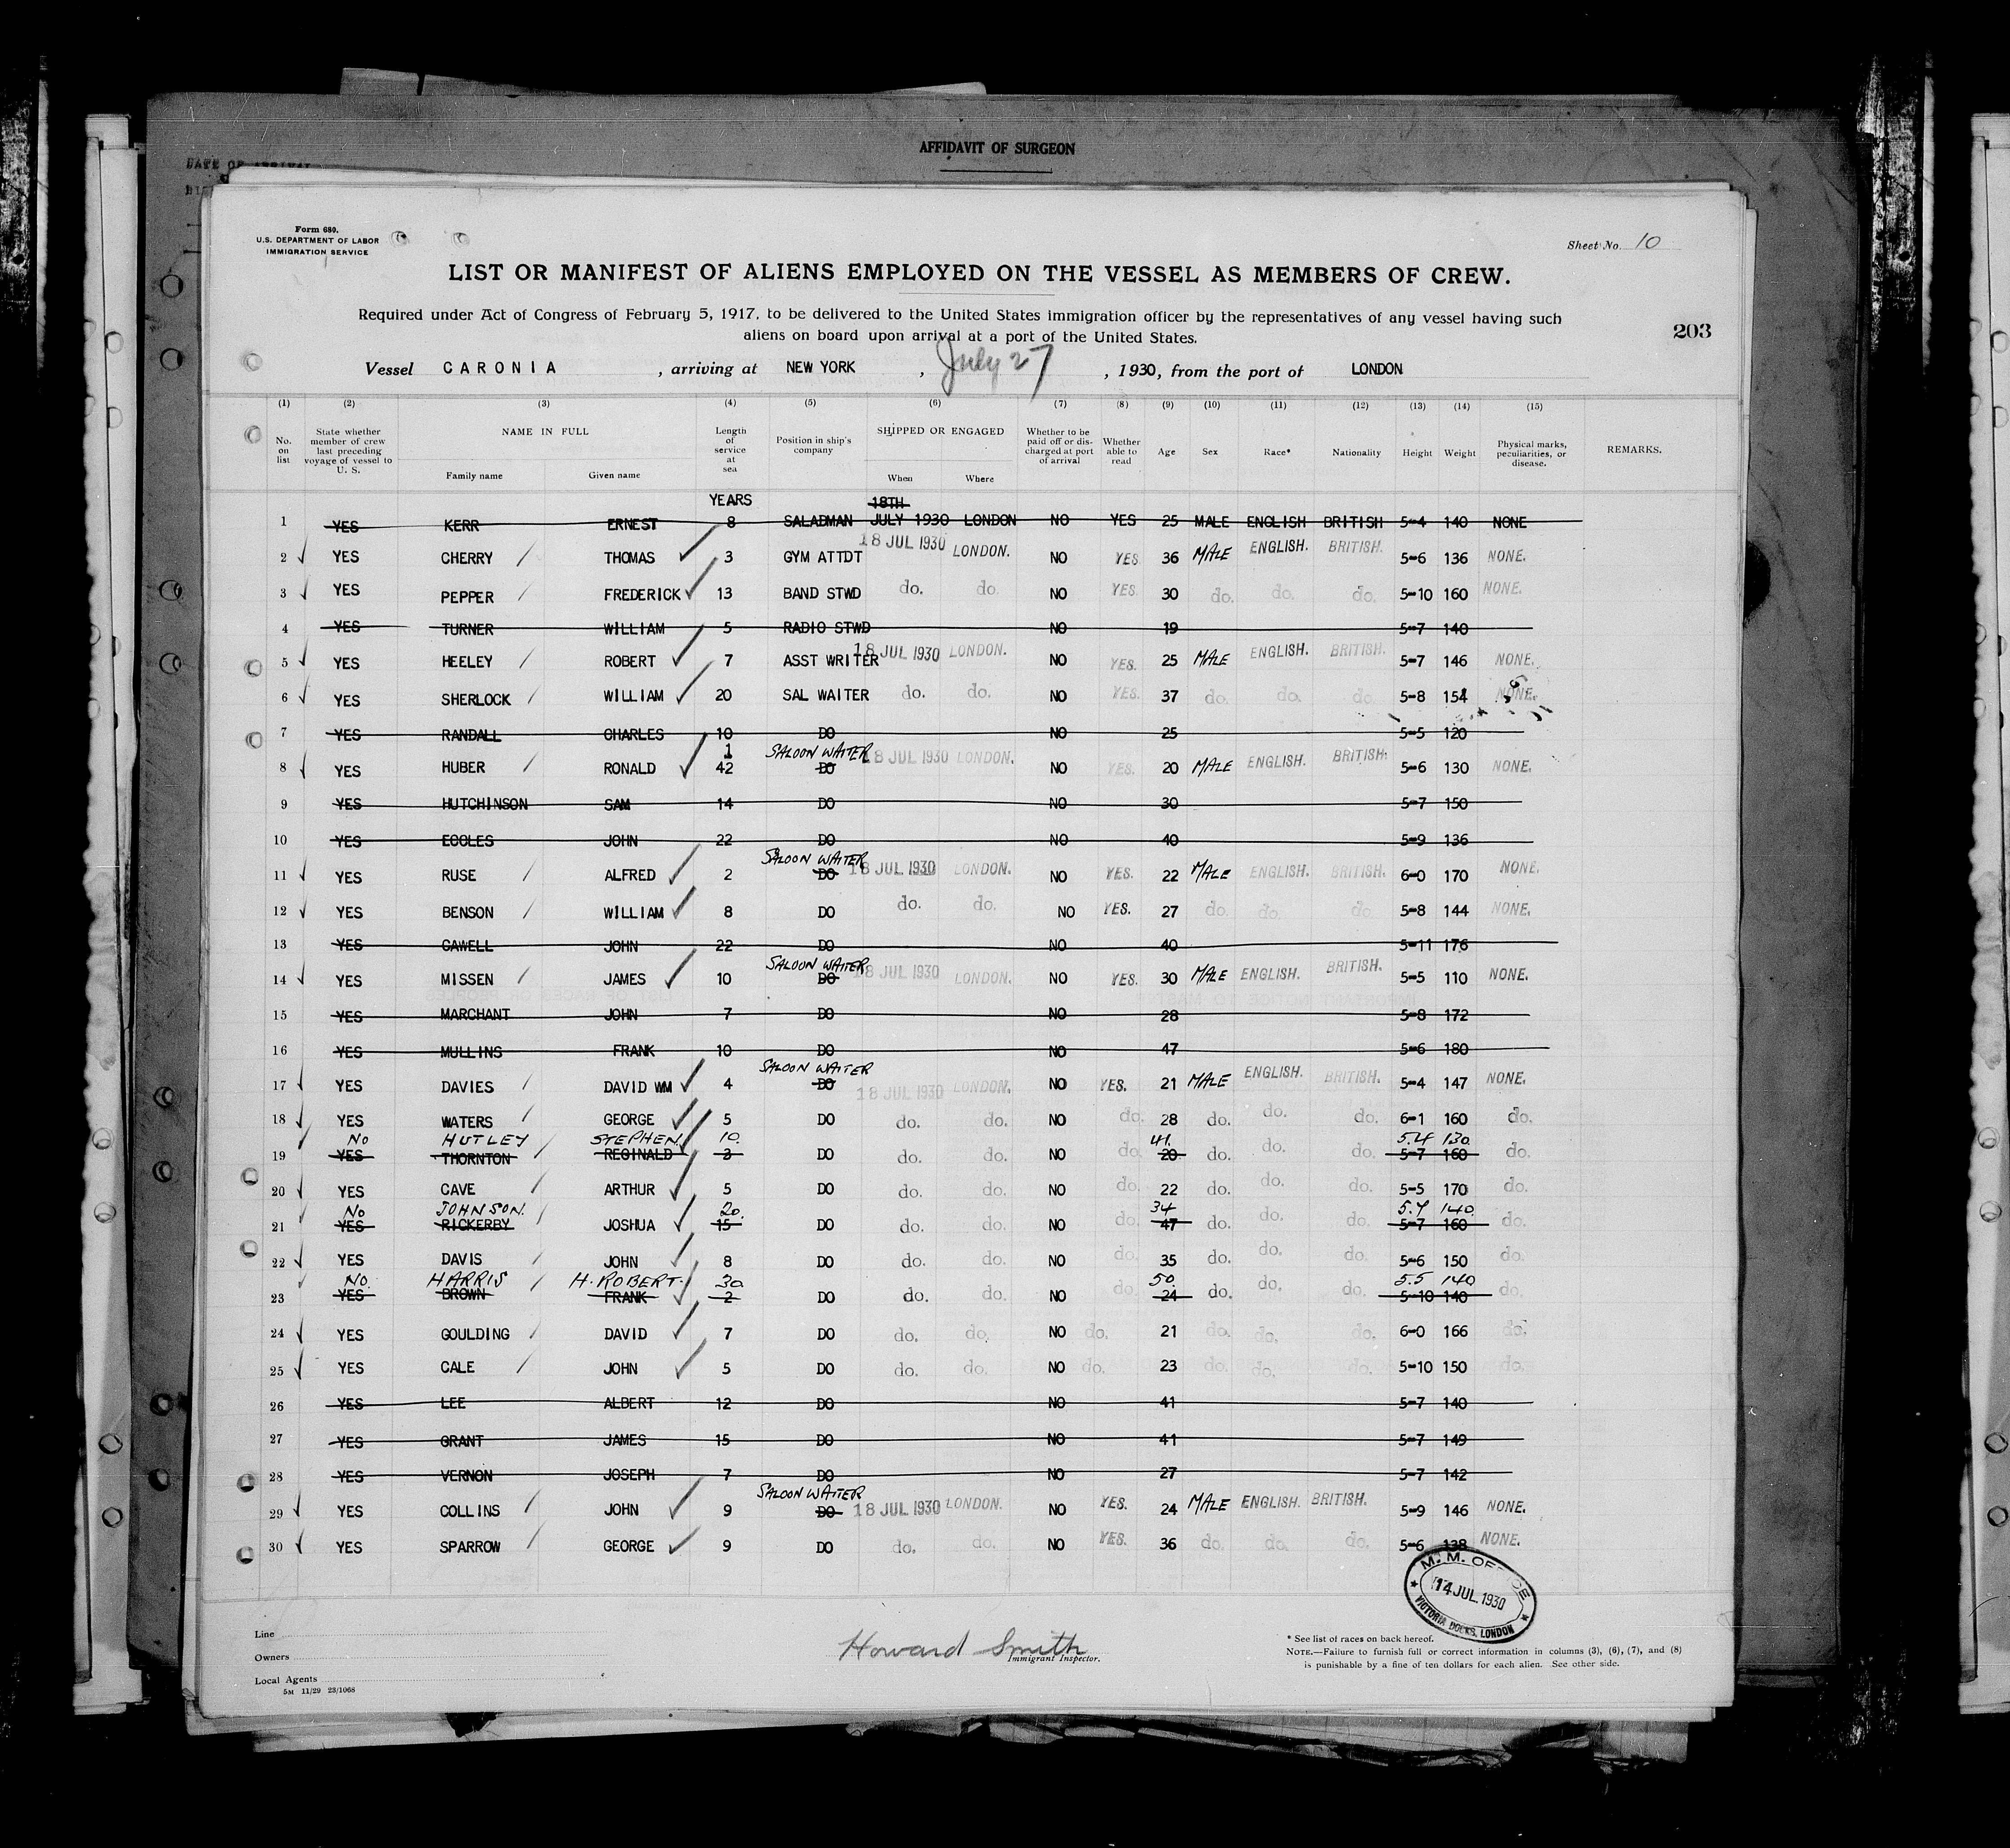 AFFIDAVIT OF SURGEON
DATE OF ARRIVAL
Form 680.
U.S. DEPARTMENT OF LABOR
IMMIGRATION SERVICE
Sheet No. 10
LIST OR MANIFEST OF ALIENS EMPLOYED ON THE VESSEL AS MEMBERS OF CREW.
Required under Act of Congress of February 5, 1917, to be delivered to the United States immigration officer by the representatives of any vessel having such
aliens on board upon arrival at a port of the United States.
203
Vessel CARONIA, arriving at NEW YORK, July 27, 1930, from the port of LONDON
(1) (2) (3) (4) (5) (6) (7) (8) (9) (10) (11) (12) (13) (14) (15)
No. on list State whether member of crew last preceding voyage of vessel to U. S. NAME IN FULL Family name Given name Length of service at sea Position in ship's company SHIPPED OR ENGAGED When Where Whether to be paid off or discharged at port of arrival Whether able to read Age Sex Race* Nationality Height Weight Physical marks, peculiarities, or disease. REMARKS.
YEARS 18TH
1 YES KERR ERNEST 8 SALADMAN JULY 1930 LONDON NO YES 25 MALE ENGLISH BRITISH 5-4 140 NONE
2 YES CHERRY THOMAS 3 GYM ATTDT 18 JUL 1930 LONDON. NO YES 36 MALE ENGLISH. BRITISH. 5-6 136 NONE.
3 YES PEPPER FREDERICK 13 BAND STWD do. do. NO YES. 30 do. do. do. 5-10 160 NONE.
4 YES TURNER WILLIAM 5 RADIO STWD NO 19 5-7 140
5 YES HEELEY ROBERT 7 ASST WRITER 18 JUL 1930 LONDON. NO YES. 25 MALE ENGLISH. BRITISH. 5-7 146 NONE.
6 YES SHERLOCK WILLIAM 20 SAL WAITER do. do. NO YES. 37 do. do. do 5-8 154 NONE.
7 YES RANDALL CHARLES 10 DO NO 25 5-5 120
1 SALOON WAITER
8 YES HUBER RONALD 42 DO 18 JUL 1930 LONDON. NO YES. 20 MALE ENGLISH. BRITISH. 5-6 130 NONE.
9 YES HUTCHINSON SAM 14 DO NO 30 5-7 150
10 YES ECCLES JOHN 22 DO NO 40 5-9 136
SALOON WAITER
11 YES RUSE ALFRED 2 DO 18 JUL 1930 LONDON. NO YES. 22 MALE ENGLISH. BRITISH. 6-0 170 NONE.
12 YES BENSON WILLIAM 8 DO do. do. NO YES. 27 do. do. do. 5-8 144 NONE.
13 YES CAWELL JOHN 22 DO NO 40 5-11 176
SALOON WAITER
14 YES MISSEN JAMES 10 DO 18 JUL 1930 LONDON. NO YES. 30 MALE ENGLISH. BRITISH. 5-5 110 NONE.
15 YES MARCHANT JOHN 7 DO NO 28 5-8 172
16 YES MULLINS FRANK 10 DO NO 47 5-6 180
SALOON WAITER
17 YES DAVIES DAVID WM 4 DO 18 JUL 1930 LONDON. NO YES. 21 MALE ENGLISH. BRITISH. 5-4 147 NONE.
18 YES WATERS GEORGE 5 DO do. do. NO do. 28 do. do. do. 6-1 160 do.
No HUTLEY STEPHEN 10. 41. 5.4 130
19 YES THORNTON REGINALD 3 DO do. do. NO do. 20 do. do. do. 5-7 160 do.
20 YES CAVE ARTHUR 5 DO do. do. NO do. 22 do. do. do. 5-5 170 do.
No JOHNSON. 20. 34 5.7 140.
21 YES RICKERBY JOSHUA 15 DO do. do. NO do. 47 do. do. do. 5-7 160 do.
22 YES DAVIS JOHN 8 DO do. do. NO do. 35 do. do. do. 5-6 150 do.
No. HARRIS H. ROBERT. 30 50. 5.5 140
23 YES BROWN FRANK 2 DO do. do. NO do. 24 do. do. do. 5-10 140 do.
24 YES GOULDING DAVID 7 DO do. do. NO do. 21 do. do. do. 6-0 166 do.
25 YES CALE JOHN 5 DO do. do. NO do. 23 do. do. do. 5-10 150 do.
26 YES LEE ALBERT 12 DO NO 41 5-7 140
27 YES GRANT JAMES 15 DO NO 41 5-7 149
28 YES VERNON JOSEPH 7 DO NO 27 5-7 142
SALOON WAITER
29 YES COLLINS JOHN 9 DO 18 JUL 1930 LONDON. NO YES. 24 MALE ENGLISH. BRITISH. 5-9 146 NONE.
30 YES SPARROW GEORGE 9 DO do. do. NO YES. 36 do. do. do. 5-6 138 NONE.
M. M. OFFICE
14 JUL. 1930
VICTORIA DOCKS, LONDON
Line
Owners
Local Agents
5M 11/29 23/1068
Howard Smith
Immigrant Inspector.
* See list of races on back hereof.
NOTE.—Failure to furnish full or correct information in columns (3), (6), (7), and (8)
is punishable by a fine of ten dollars for each alien. See other side.